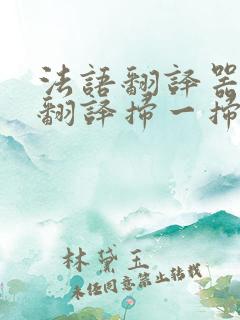 法語翻譯器
翻譯掃一掃
林黛玉
未經同意禁止轉載